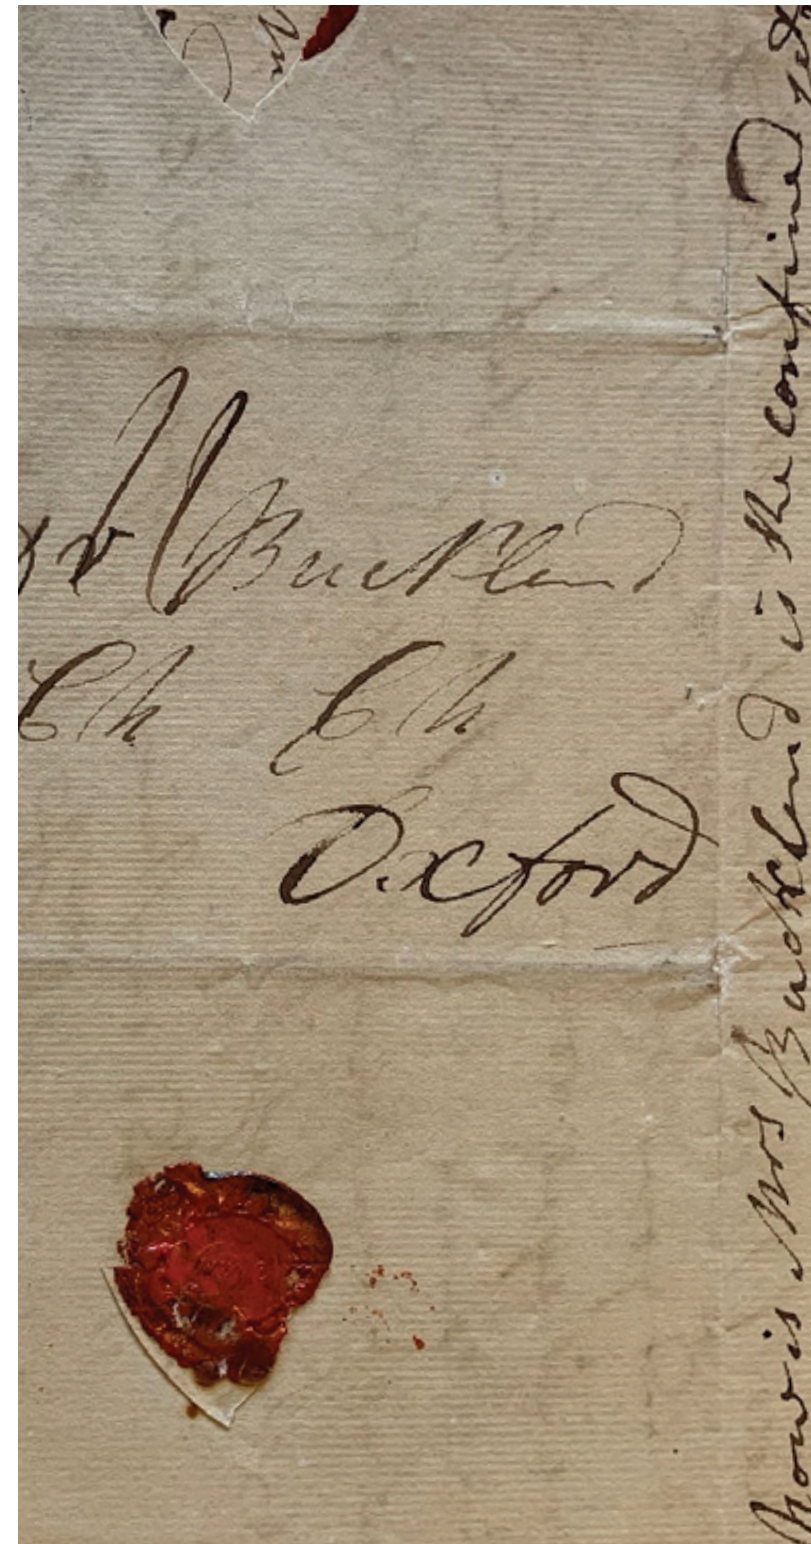 Dr Buckland
Ch Ch
Oxford
how is Mrs Buckland is she confined yet